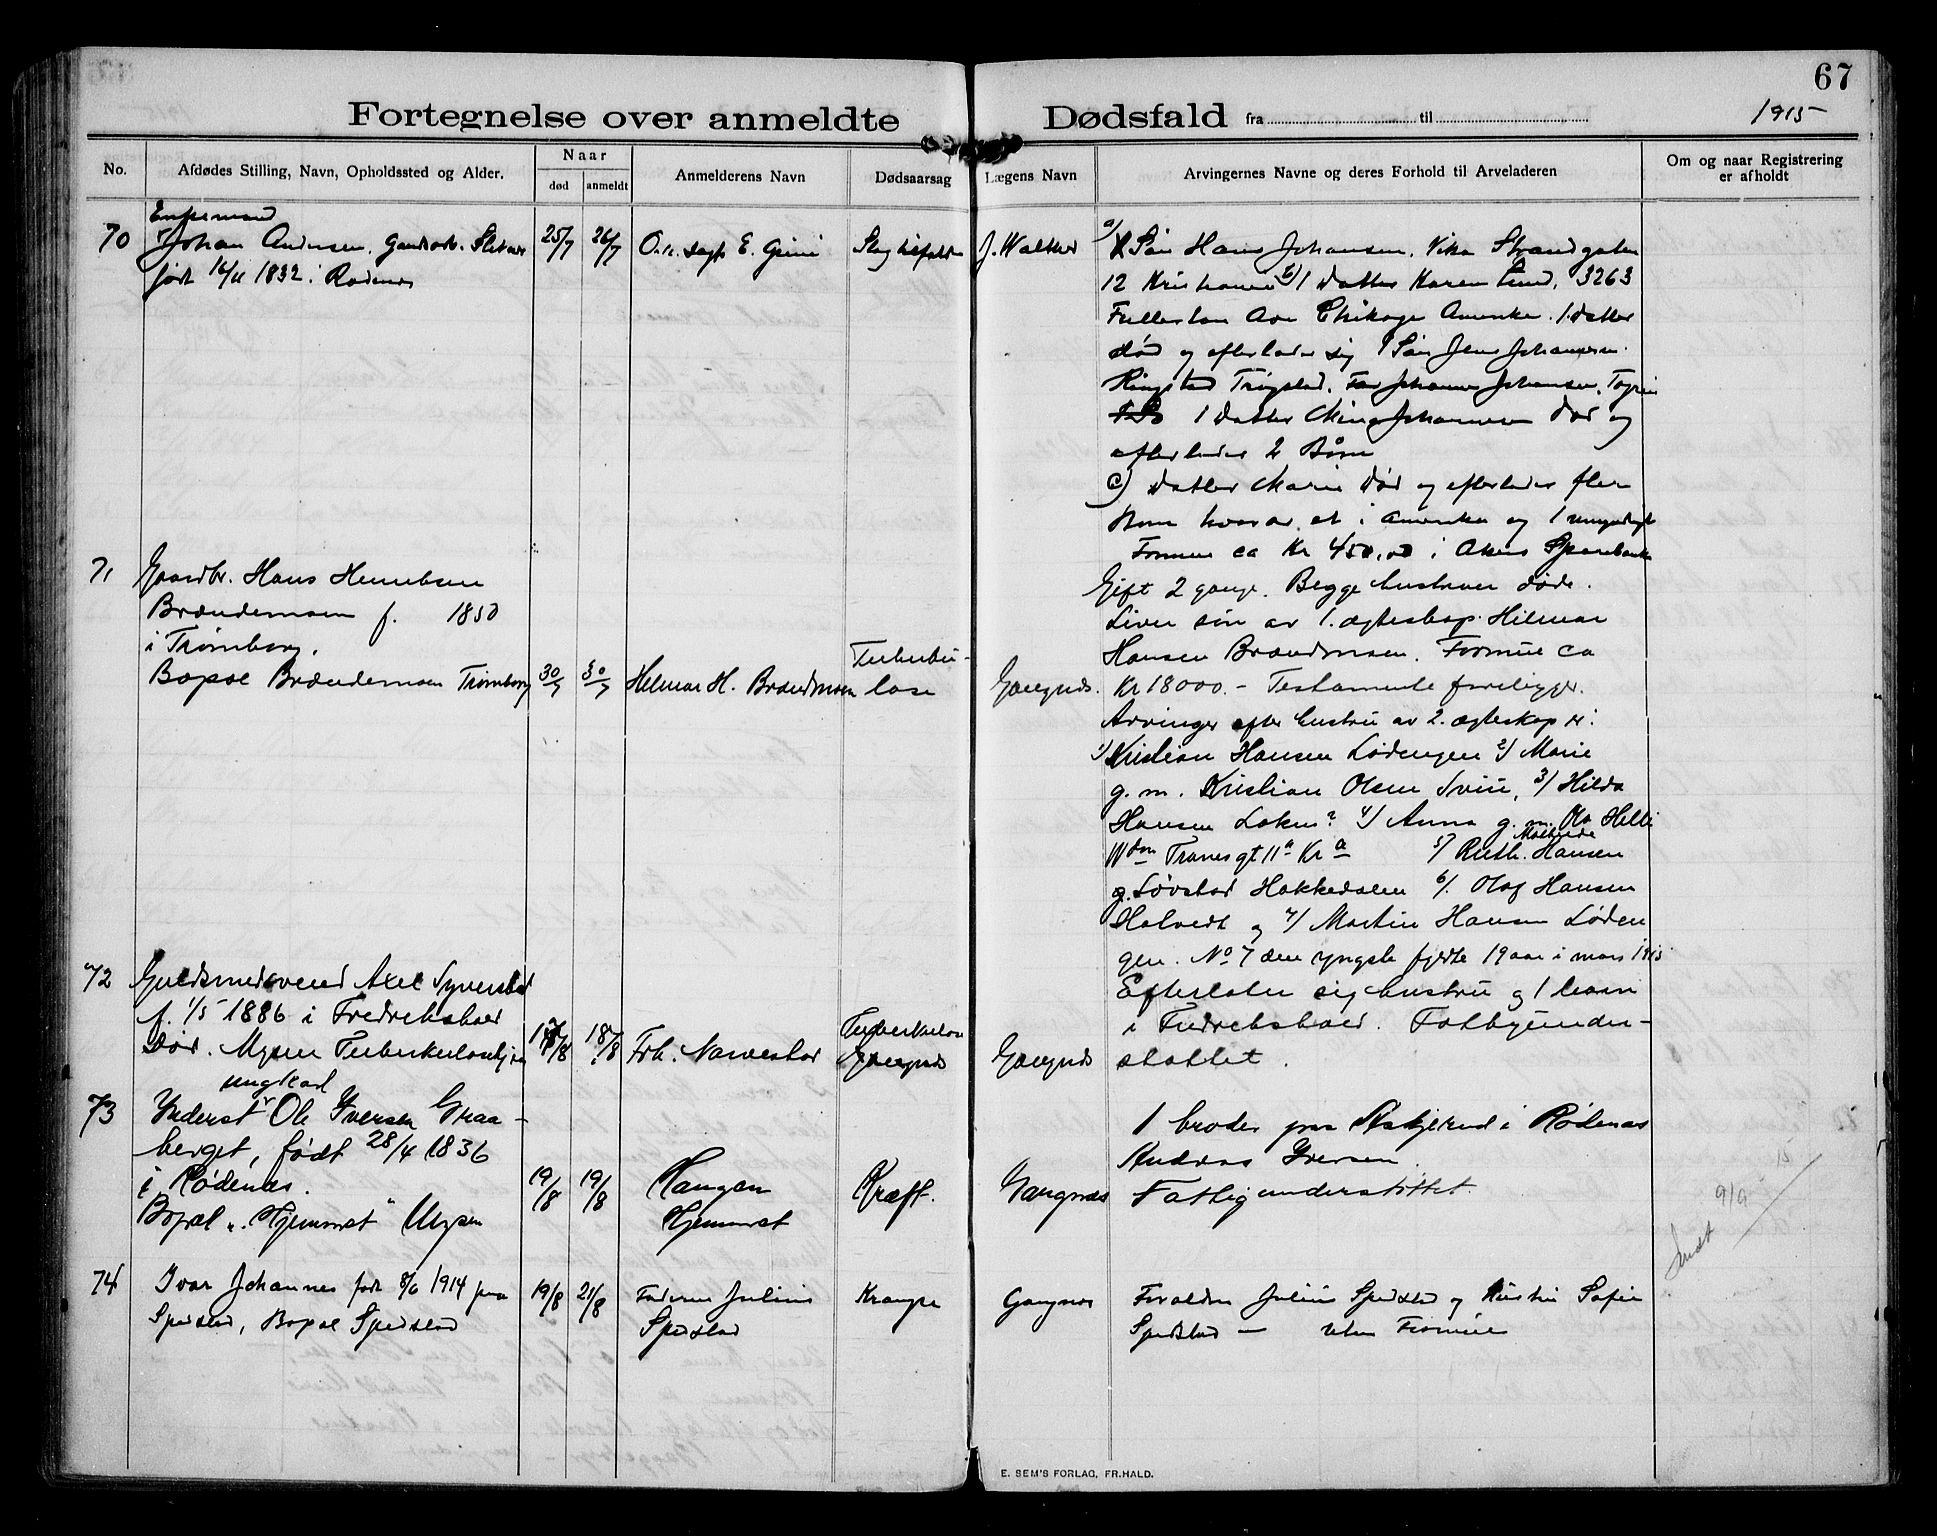 67
Fortegnelse over anmeldte Dødsfald fra til
1915
No.
Afdødes Stilling, Navn, Opholdssted og Alder.
Naar
død
anmeldt
Anmelderens Navn
Dødsaarsag
Lægens Navn
Arvingernes Navne og deres Forhold til Arveladeren
Om og naar Registrering
er afholdt
70
Enkemand
Johan Andersen,
født 16/11 1832 i Rødenes
25/7
26/7
E.
Slagtilfælde
J. Walther
a/ Søn Hans Johansen, Vika Strandgaten
12 Kristiania b/ 1 Datter Karen Lund, 3263
Fullerton Ave Chikago Amerika. 1 Datter
død og efterlader sig 1 Søn Jens Johansen
Ringstad Trøgstad. Johannes Johansen,
1 Datter Mina Johansen død og
efterlader 2 Børn
c) Datter Marie død og efterlader flere
Børn hvorav et i Amerika og 1 umyndigt
Formue ca Kr 450,00 i Akers Sparebank
71
Gaardbr. Hans Henriksen
Brændemoen f. 1850
i Trømborg.
Bopæl Brændemoen Trømborg
30/7
30/7
Helmar H. Brændmoen
Tuberku-
lose
Gangnæs.
Gift 2 gange. Begge hustruer døde.
Lever søn av 1. ægteskap: Hilmar
Hansen Brændmoen. Formue ca
Kr 18000.- Testamente foreligger.
Arvinger efter hustru av 2. ægteskap er:
1) Kristian Hansen Lødengen 2/ Marie
g. m. Kristian Olsen 3/ Hilda
Hansen Loken? 4/ Anna g. m. Ola
Tranesgt 11a Kra 5/ Ruth Mathilde Hansen
g. Løvstad Hakkedalen 6/. Olaf Hansen
og 7/ Martin Hansen Løden
gen. No 7 den yngste fyldte 19 aar i mars 1915
72
Guldsmedsvend Axel Syverstad
f. 1/5 1886 i Fredrikshald
Død. Mysen Tuberkulosehjem
17/8
18/8
Frk. Narvestad
Tuberkulose
Gangnæs
Gangnæs
Efterlater sig hustru og 1 barn
i Fredrikshald. Fattigunder-
støttet.
73
ungkarl
Inderst Ole Iversen Graa-
berget, født 28/4 1836
i Rødenæs.
Bopæl "Hjemmet" Mysen
19/8
19/8
Haugen
Hjemmet
Kræft.
Gangnæs
1 broder paa Askjerud i Rødenæs
Andreas Iversen.
Fattigunderstøttet.
Sendt 9/9 15
74
Ivar Johannes født 8/6 1914 paa
Spedstad, Bopæl Spedstad
19/8
21/8
Faderen Julius
Spedstad
Krampe
Gangnæs
Forældre Julius Spedstad og Kristine Sofie
Spedstad — uten Formue
E. SEM'S FORLAG, FR.HALD.